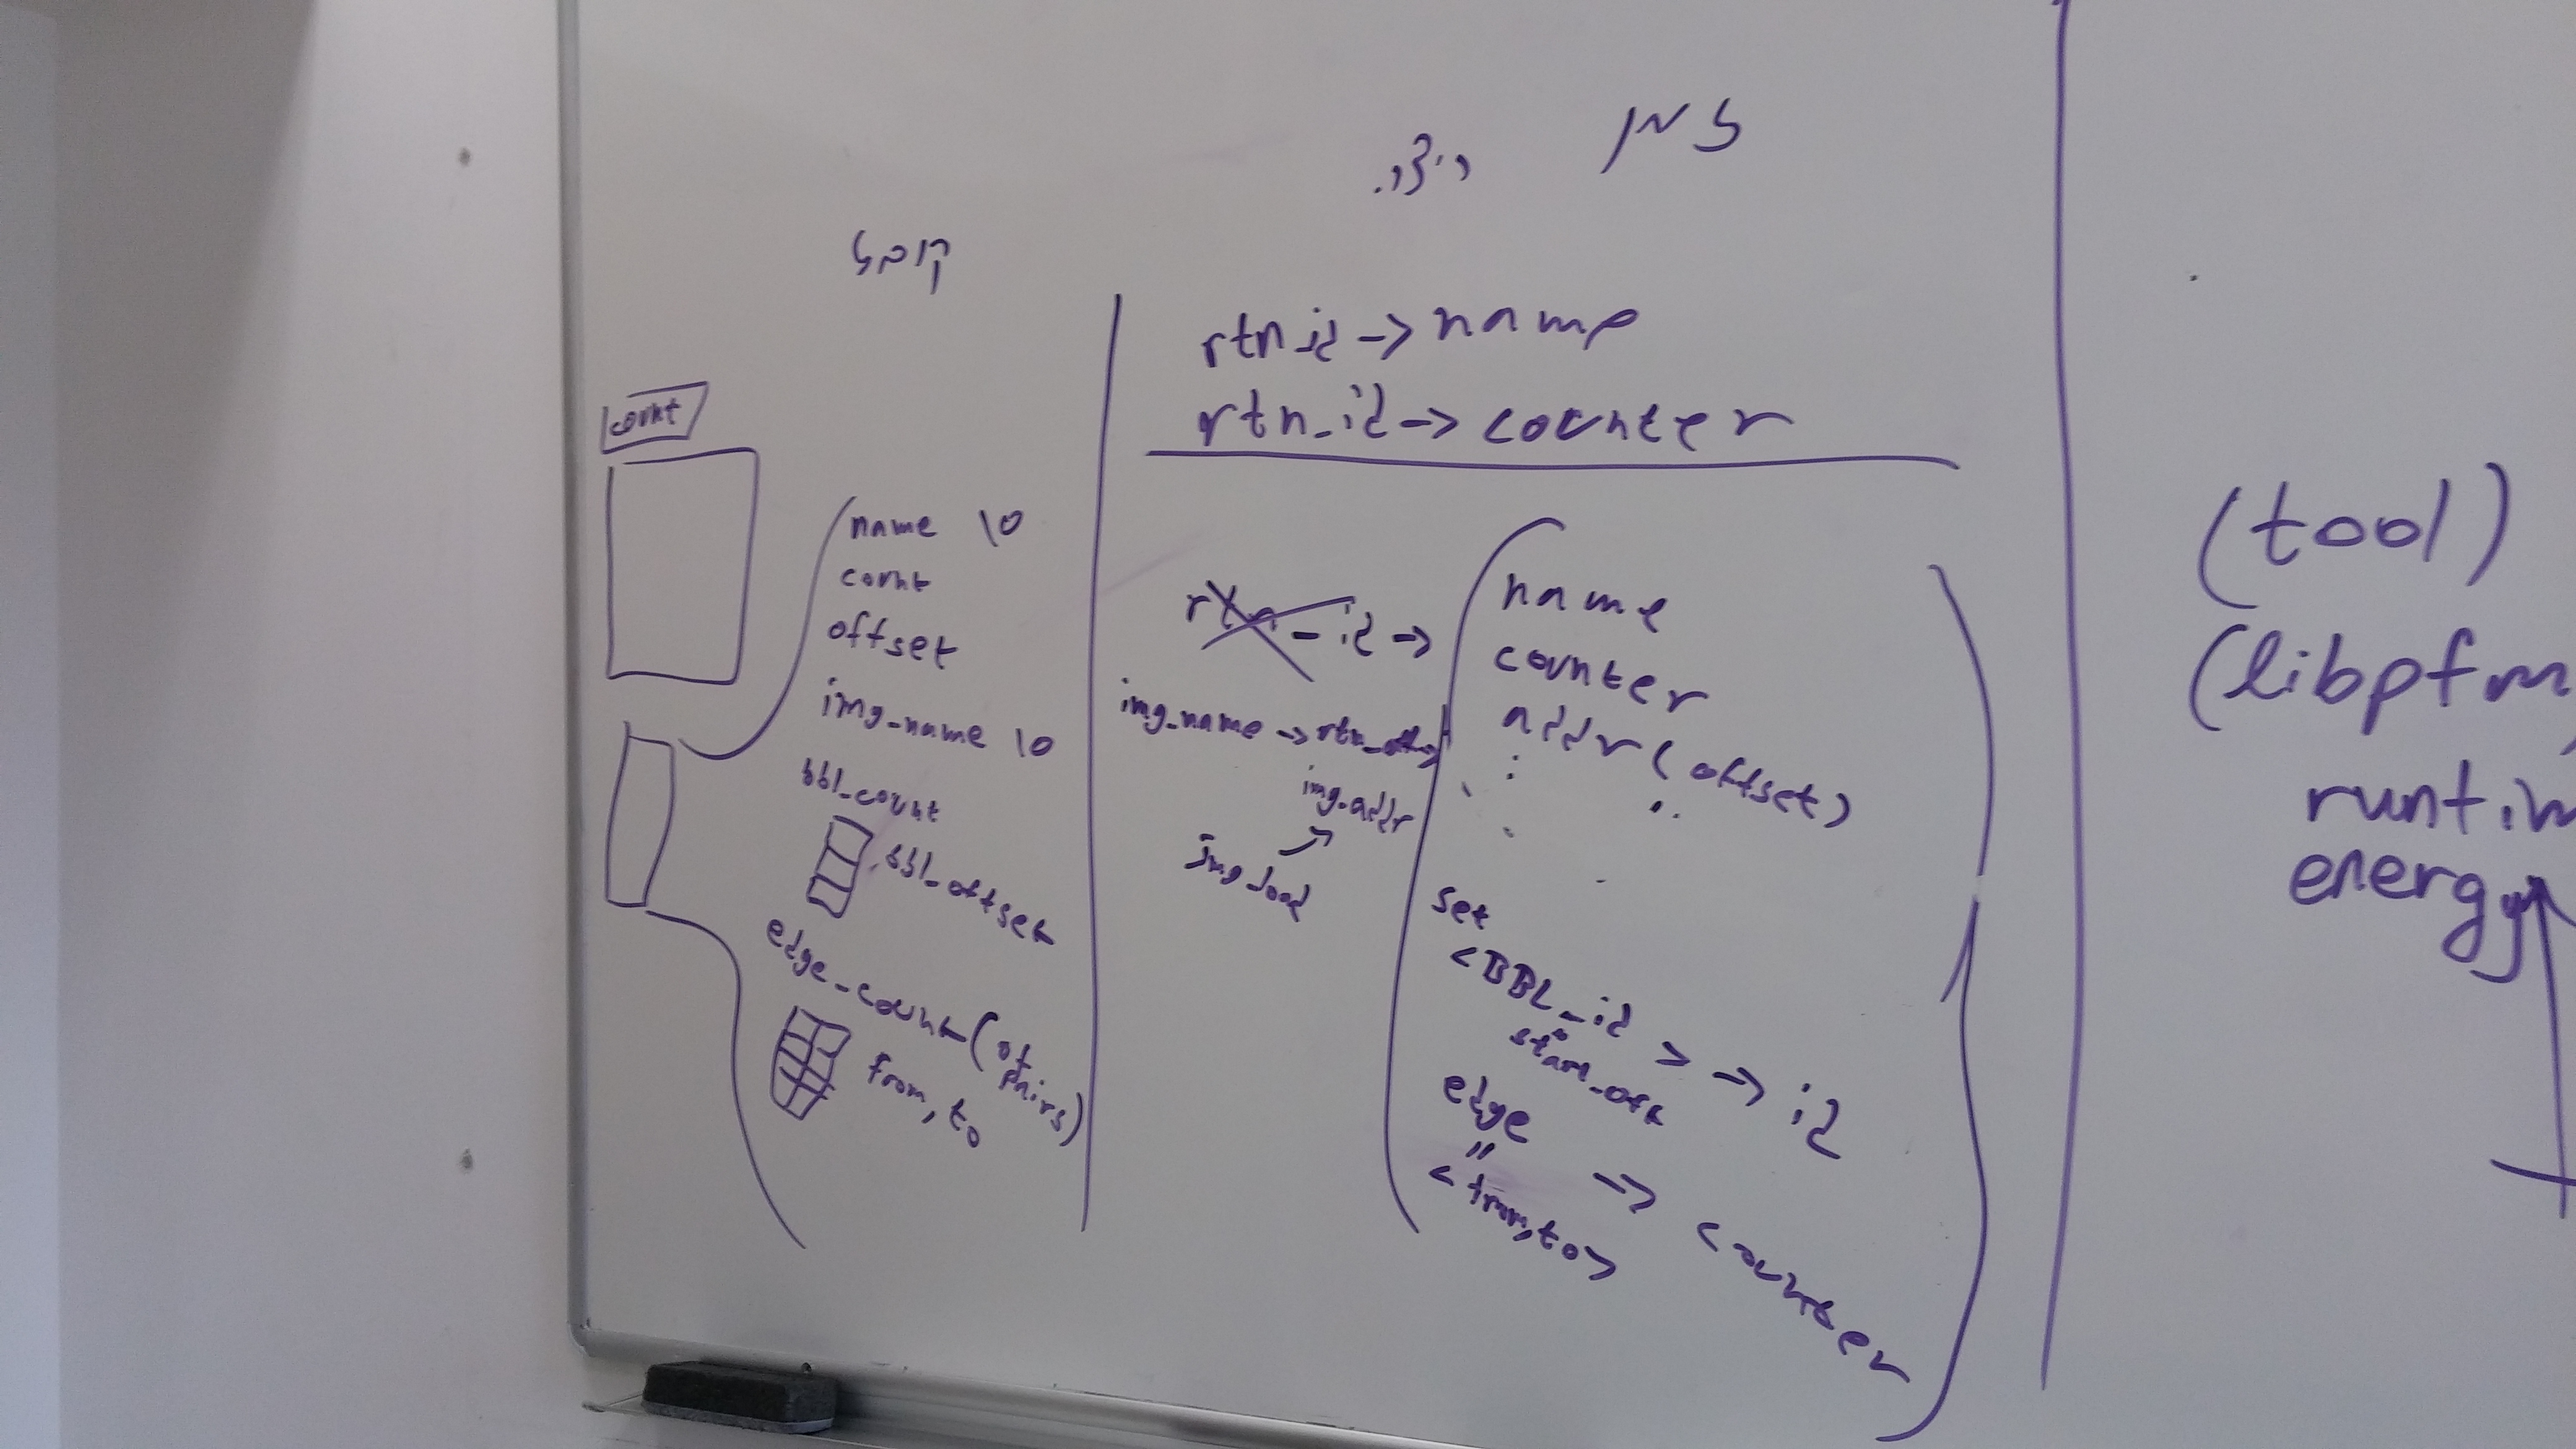 זמן ריצה
קובץ
count
name \0
count
offset
img_name \0
bbl_count
bbl_offset
edge_count (of pairs)
from, to
rtn_id -> name
rtn_id -> counter
rtn_id ->
img_name -> rtn_
img_addr
img_load
name
counter
addr (offset)
set
<BBL_id> -> id
edge -> counter
"
<from, to>
(tool)
(libpfm)
runtim
energy